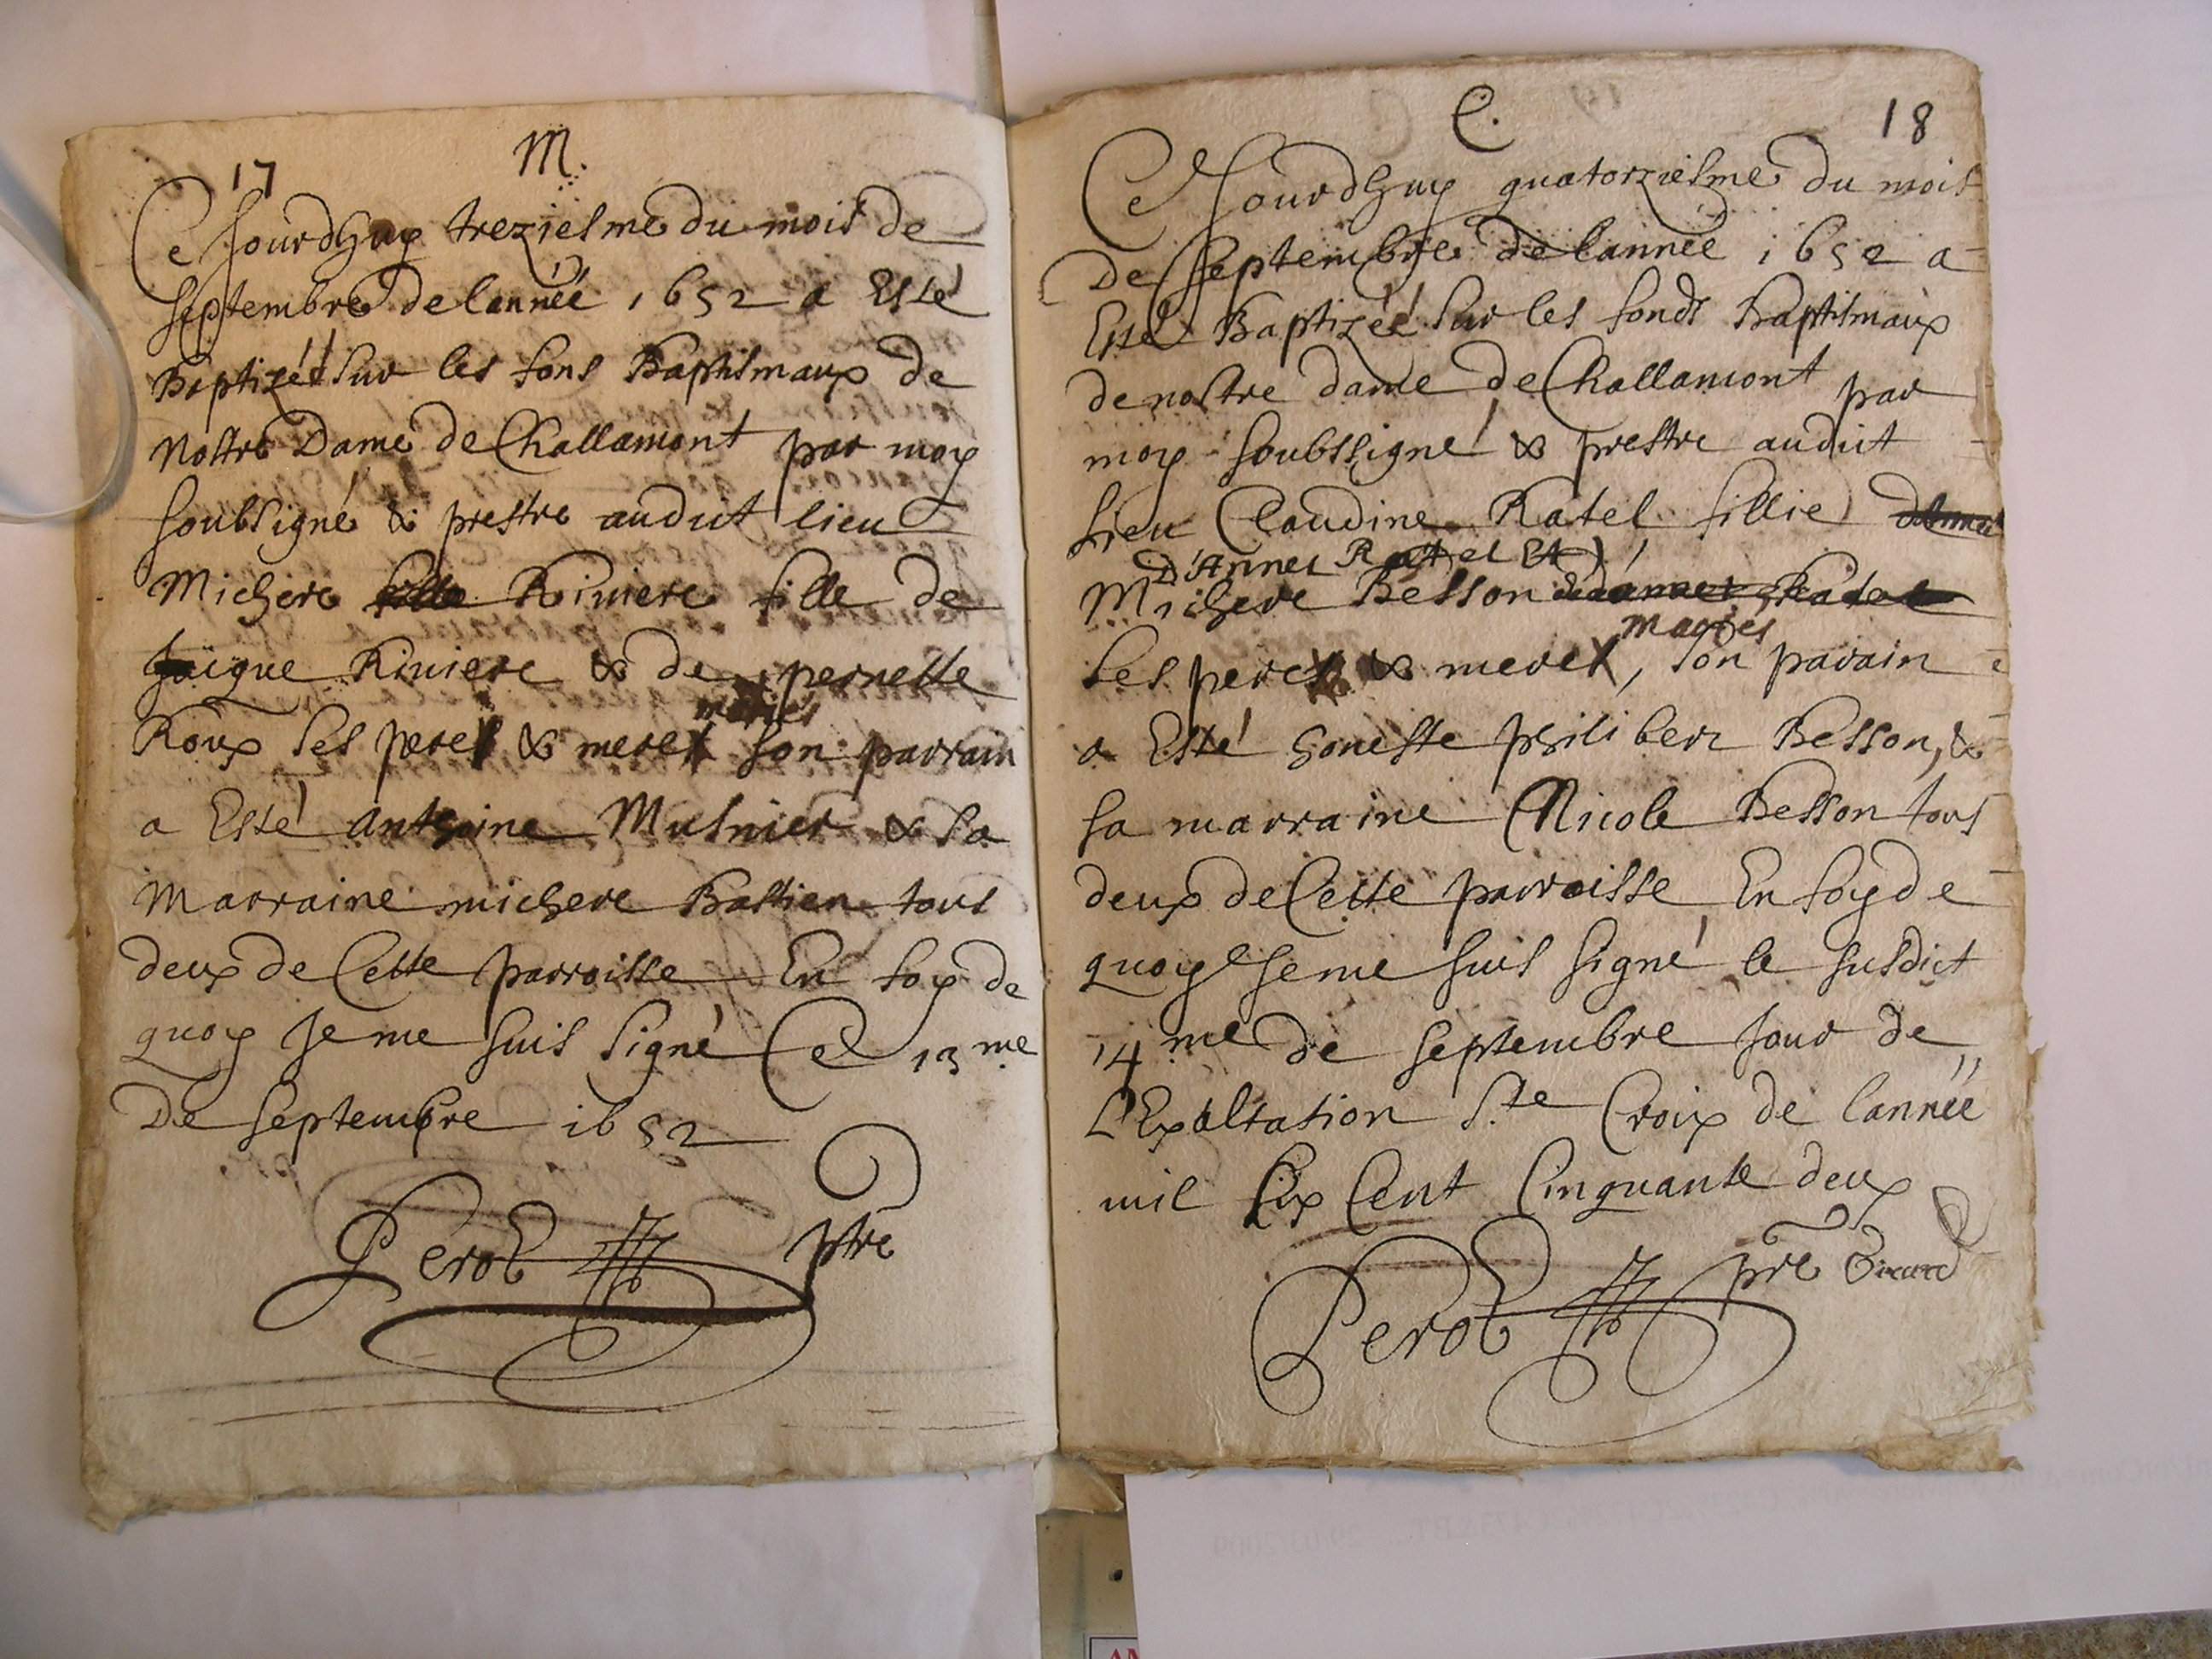 17
M.
Ce Jourdhuy treziesme du mois de
septembre de lannéé 1652 a Esté
Baptizéé sur les fons Baptismaux de
nostre Dame de Challamont par moy
soubsigné & prestre audict lieu
Michere fille Riviere fille de
Jaique Riviere & de pernette
mariés
Roux ses peres & meres son parrain
a Esté anthoine Musnier & sa
Marraine michere Bastien tous
deux de Cette parroisse En foy de
quoy Je me suis signé Ce 13 me
De septembre 1652
Perot ptre
C.
18
Ce Jourdhuy quatorziesme du mois
De septembre de lannéé 1652 a
Esté Baptizéé sur les fonds Baptismaux
de nostre dame de Challamont par
moy soubssigné & prestre audict
Lieu Claudine Ratel fillie
D'Annei Ratel Et
Michere Besson de annei Ratel
mariés
ses peres & meres, son parain
a Esté honeste philiber Besson, &
sa marraine Nicole Besson tous
deux de Cette parroisse En foy de
quoy Je me suis signé le susdict
14 me de septembre Jour de
L'Exaltation S.te Croix de lannéé
mil six Cent Cinquante deux
Perot pre